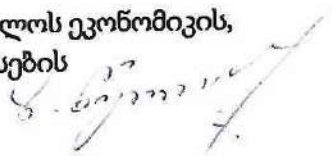 ლოს ეკონომიკის,
სების